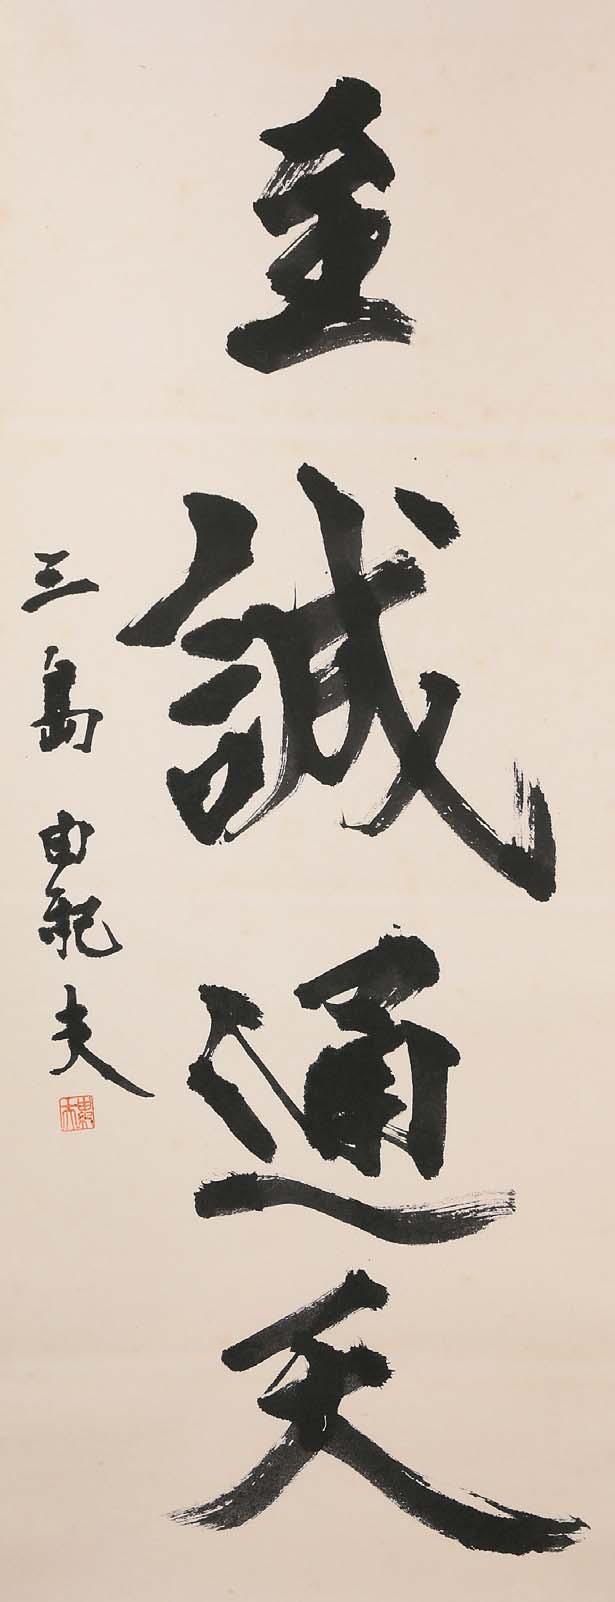 至誠通天
三島由紀夫